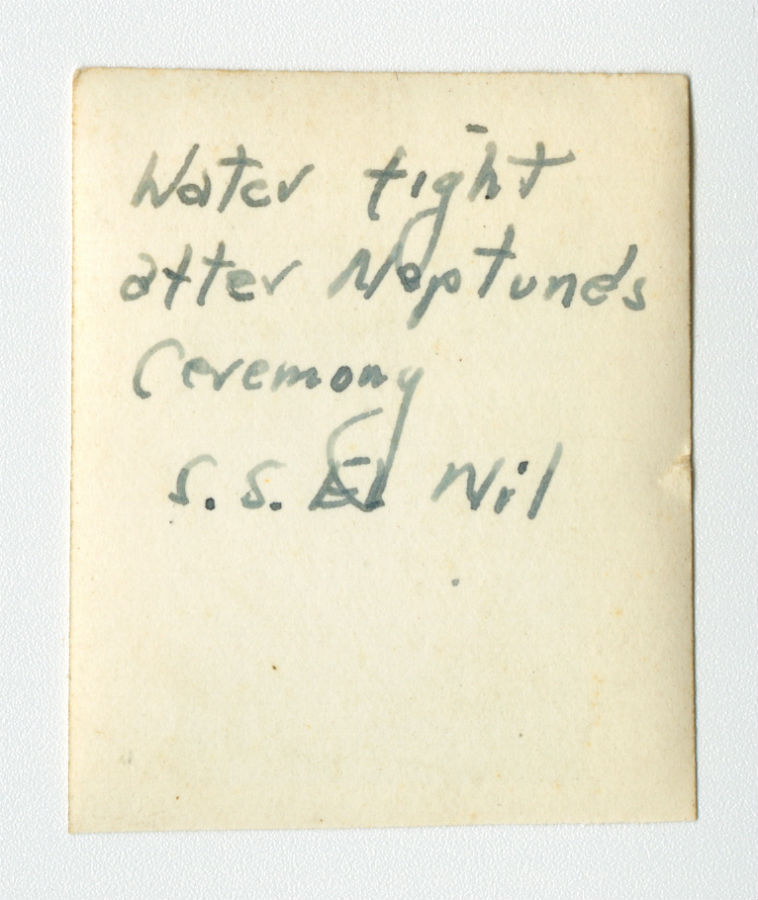 Water fight
after Neptune's
Ceremony
S.S. El Nil